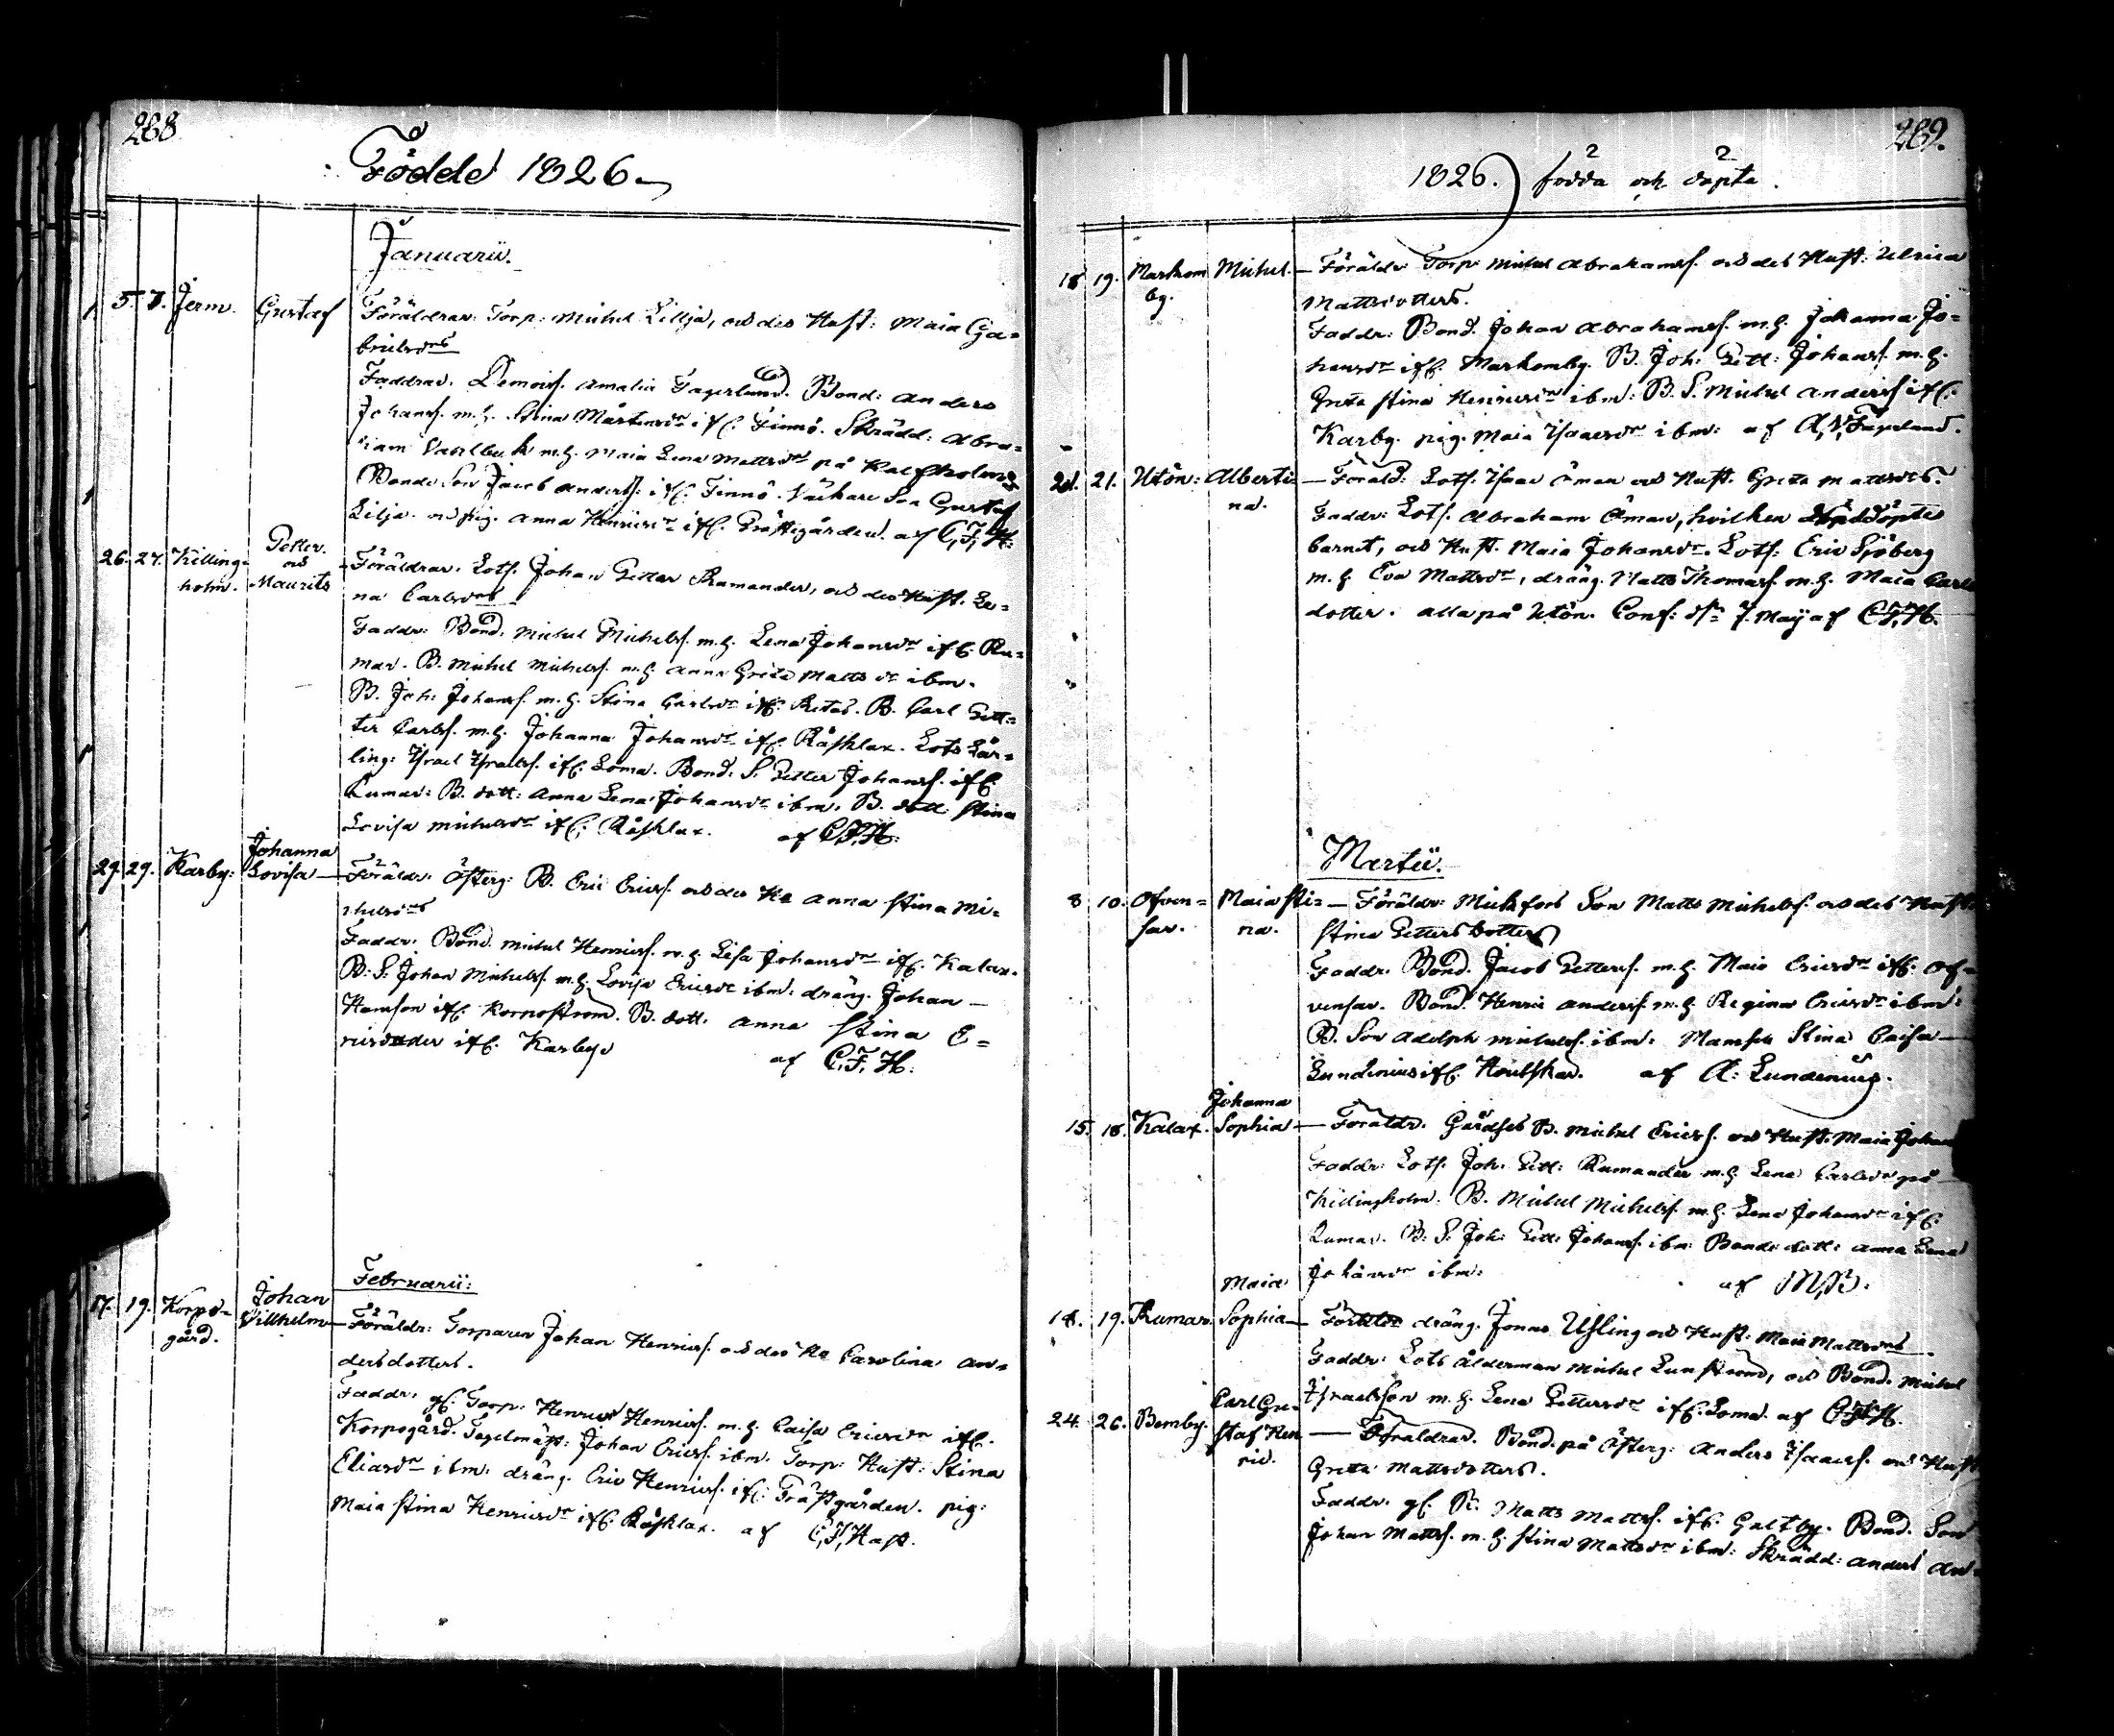 288.
Födde 1826.
Januarii.
5. 7. Jerm. Gustaf Föräldrar: Torp: Michel Lillja, och des Hust: Maia Ga=
brielsdrs
Faddrar. Demois. Amalia Fagerlund. Bond: Anders
Johanss. m.h. Stina Mårtensdr ifr. Finnö. Skrädd: Abra=
ham m.h. Maia Lena Mattsdr på Kalfholm
Bonde Son Jacob Anderss: ifr. Finnö. Son Gustaf
Lilja. och pig. Anna Henricsdr ifr. Prästegården. af C,F,H:
26. 27. Killing=
holm. Petter
och
Maurits Föräldrar. Lots. Johan Petter Ramander, och des Hust. Le=
na Carlsdrs
Faddr: Bond. Michel Michelss. m.h. Lena Johansdr ifr. Ru=
mar. B. Michel Michelss. m.h. Anna Greta Mattsdr ibm.
B. Joh: Johanss. m.h. Stina Carlsdr ifr. Retais. B. Carl Pett=
ter Carlss. m.h. Johanna Johansdr ifr. Råsklax. Lots Lär=
ling: Israel Israelss. ifr. Loma. Bond. S. Petter Johanss. ifr.
Rumar: B. dott: Anna Lena Johansdr ibm. B. dott: Stina
Lovisa Michelsdr ifr. Råsklax. af C.F.H:
29. 29. Karby: Johanna
Lovisa — Föräldr: Österg: B. Eric Ericss. och des Anna Stina Mi=
chelsdrs
Faddr: Bond. Michel Henricss. m.h. Lisa Johansdr ifr. Kalax.
B: S: Johan Michelss. m.h. Lovisa Ericsdr ibm: dräng. Johan —
Hanson ifr. Kornoström. B. dott. Anna Stina E=
ricsdoter ifr. Karby. af C.F.H:
Februarii:
17. 19. Korpo=
gård. Johan
Willhelm — Föräldr: Torparen Johan Henricss. och des Carolina An=
dersdotters.
Faddr. gl. Torp: Henric Henricss. m.h. Caisa Ericsdr ifr.
Korpogård. Fogelmäst: Johan Ericss. ibm. Torp: Hust: Stina
Eliasdr ibm: dräng. Eric Henricss. ifr. Prästgården. pig:
Maia Stina Henricsdr ifr. Råsklax. af C,F,Hast.
289.
1826. födda och döpta.
18 19. Markom
by. Michel. — Föräldr Torp: Michel Abrahamss. och des Hust: Ulrica
Mattsdotters.
Faddr: Bond. Johan Abrahamss. m.h. Johanna Jo=
hansdr ifr. Markomby. B. Joh: Pett: Johanss. m.h.
Greta Stina Henricsdr ibm: B. S. Michel Anderss ifr.
Karby. pig. Maia Isaacsdr ibm: af A,N,Fagerlund.
21. 21. Utön: Alberti=
na. — Föräld: Lots. Isaac Öman och Hust. Greta Mattsdrs.
Faddr: Lots. Abraham Öman, hvilken döpte
barnet, och Hust. Maia Johansdr. Lots: Eric Sjöberg
m.h. Eva Mattsdr, dräng. Matts Thomass. m.h. Maia Carls
dotter. alla på Utön. Conf: dn 7. Maij af C.F.H.
Martii.
8 10. Ofven=
sar. Maia Sti=
na. — Föräldr: Son Matts Michelss. och des Hust:
Stina Pettersdotters
Faddr. Bond. Jacob Petterss. m.h. Maia Ericsdr ifr. Of=
vensar. Bond. Henric Anderss. m.h. Regina Ericsdr ibm:
B. Son Adolph Michelss. ibm: Mamsell Stina Caisa —
Lundenius ifr. Houtskär. af A: Lundenius.
15. 18. Kalax. Johanna
Sophia — Föräldr. B. Michel Ericss. och Hust. Maia Johans
Faddr: Lots. Joh: Pett: Ramander m.h. Lena Carlsdr på
Killingholm. B. Michel Michelss. m.h. Lena Johansdr ifr.
Rumar. B: S. Joh: Pett: Johanss. ibm: Bonde dott: Anna Lena
Johansdr ibm: af M,B.
18. 19. Rumar. Maia
Sophia — Föräldr dräng. Jonas Usling och Hust: Maia Mattsdrs.
Faddr: Lots Ålderman Michel Lunström, och Bond. Michel
Israelsson m.h. Lena Pettersdr ifr. Loma. af C,F,H.
24. 26. Bemby. Carl Gu=
staf Hen
ric. — Föräldrar. Bond. på Österg: Anders Isaacss. och Hust
Greta Mattsdotters.
Faddr. gl. B. Matts Mattss. ifr. Galtby. Bond. Son
Johan Mattss. m.h. Stina Mattsdr ibm: Skrädd: Anders An=